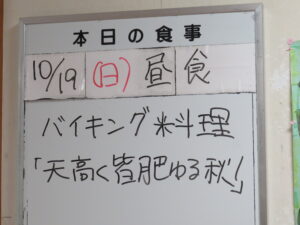 本日の食事
10/19 (日) 昼 食
バイキング料理
「天高く皆肥ゆる秋!」